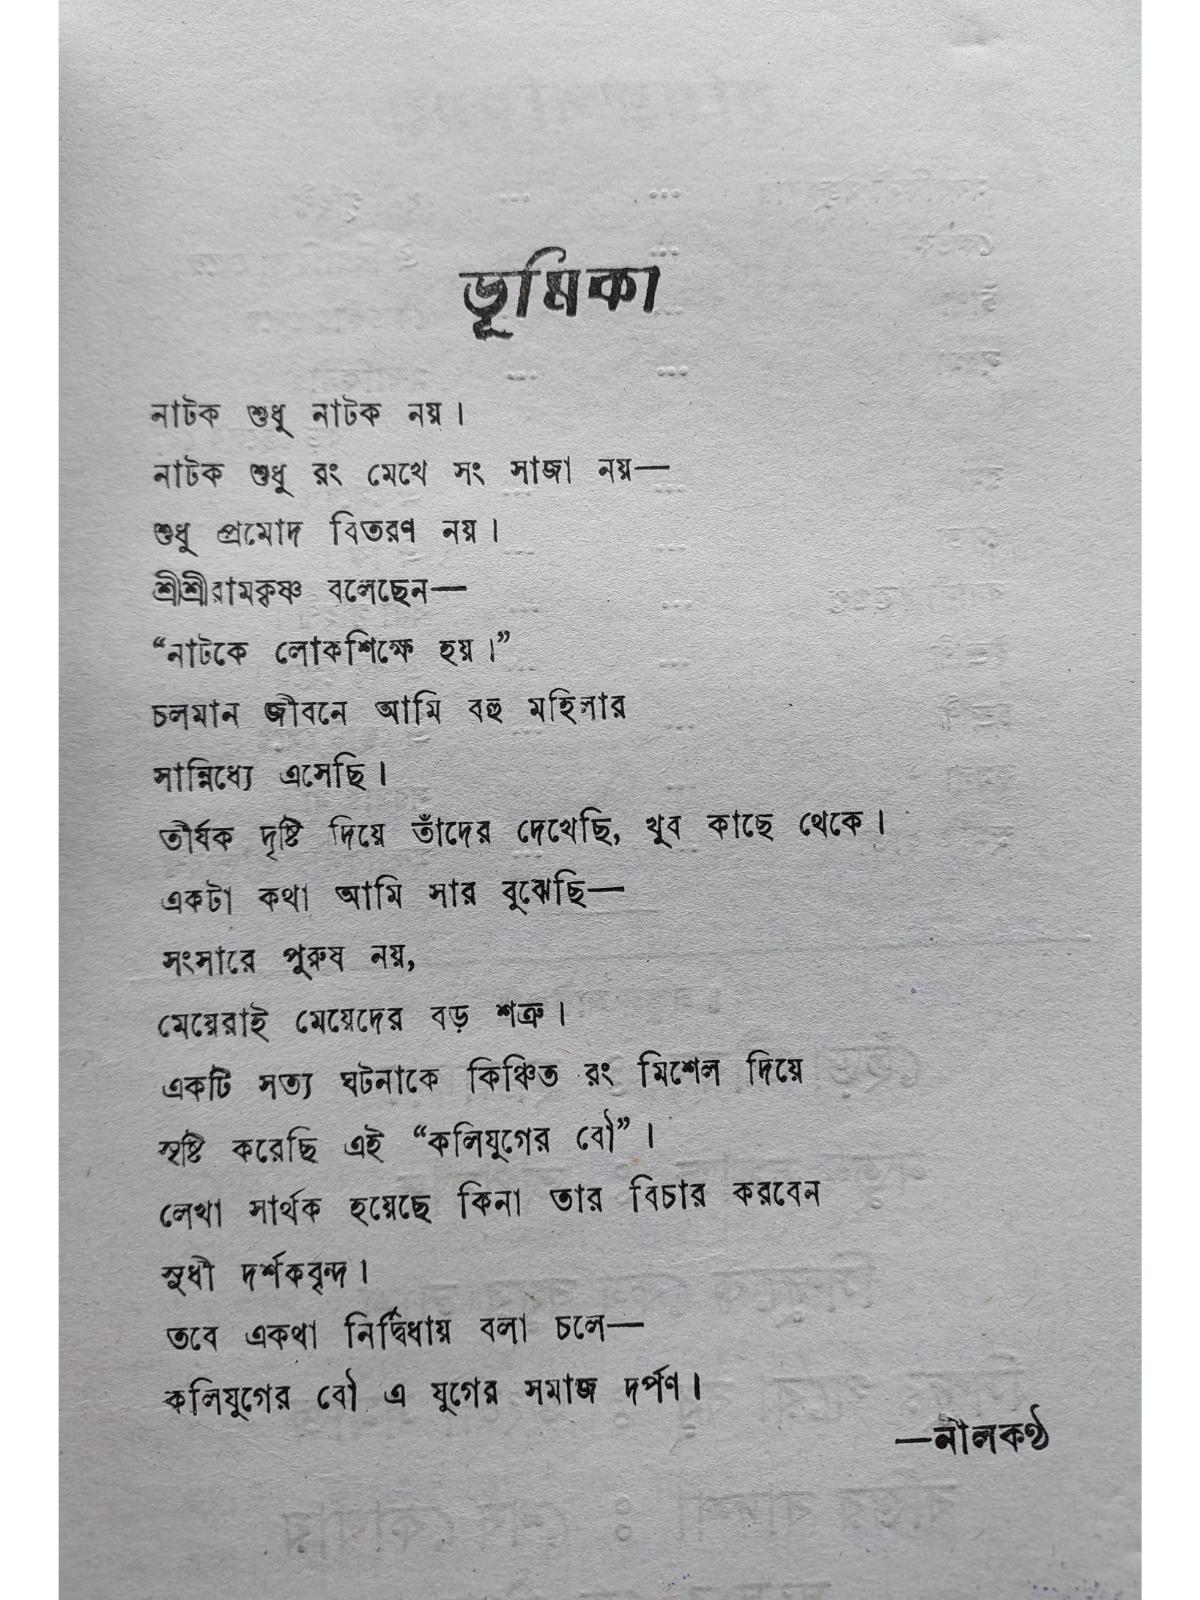 ভূমিকা
নাটক শুধু নাটক নয়।
নাটক শুধু রং মেখে সং সাজা নয়—
শুধু প্রমোদ বিতরণ নয়।
শ্রীশ্রীরামকৃষ্ণ বলেছেন—
“নাটকে লোকশিক্ষে হয়।”
চলমান জীবনে আমি বহু মহিলার
সান্নিধ্যে এসেছি।
তীর্যক দৃষ্টি দিয়ে তাঁদের দেখেছি, খুব কাছে থেকে।
একটা কথা আমি সার বুঝেছি—
সংসারে পুরুষ নয়,
মেয়েরাই মেয়েদের বড় শত্রু।
একটি সত্য ঘটনাকে কিঞ্চিত রং মিশেল দিয়ে
সৃষ্টি করেছি এই “কলিযুগের বৌ”।
লেখা সার্থক হয়েছে কিনা তার বিচার করবেন
সুধী দর্শকবৃন্দ।
তবে একথা নির্দ্বিধায় বলা চলে—
কলিযুগের বৌ এ যুগের সমাজ দর্পণ।
—নীলকণ্ঠ